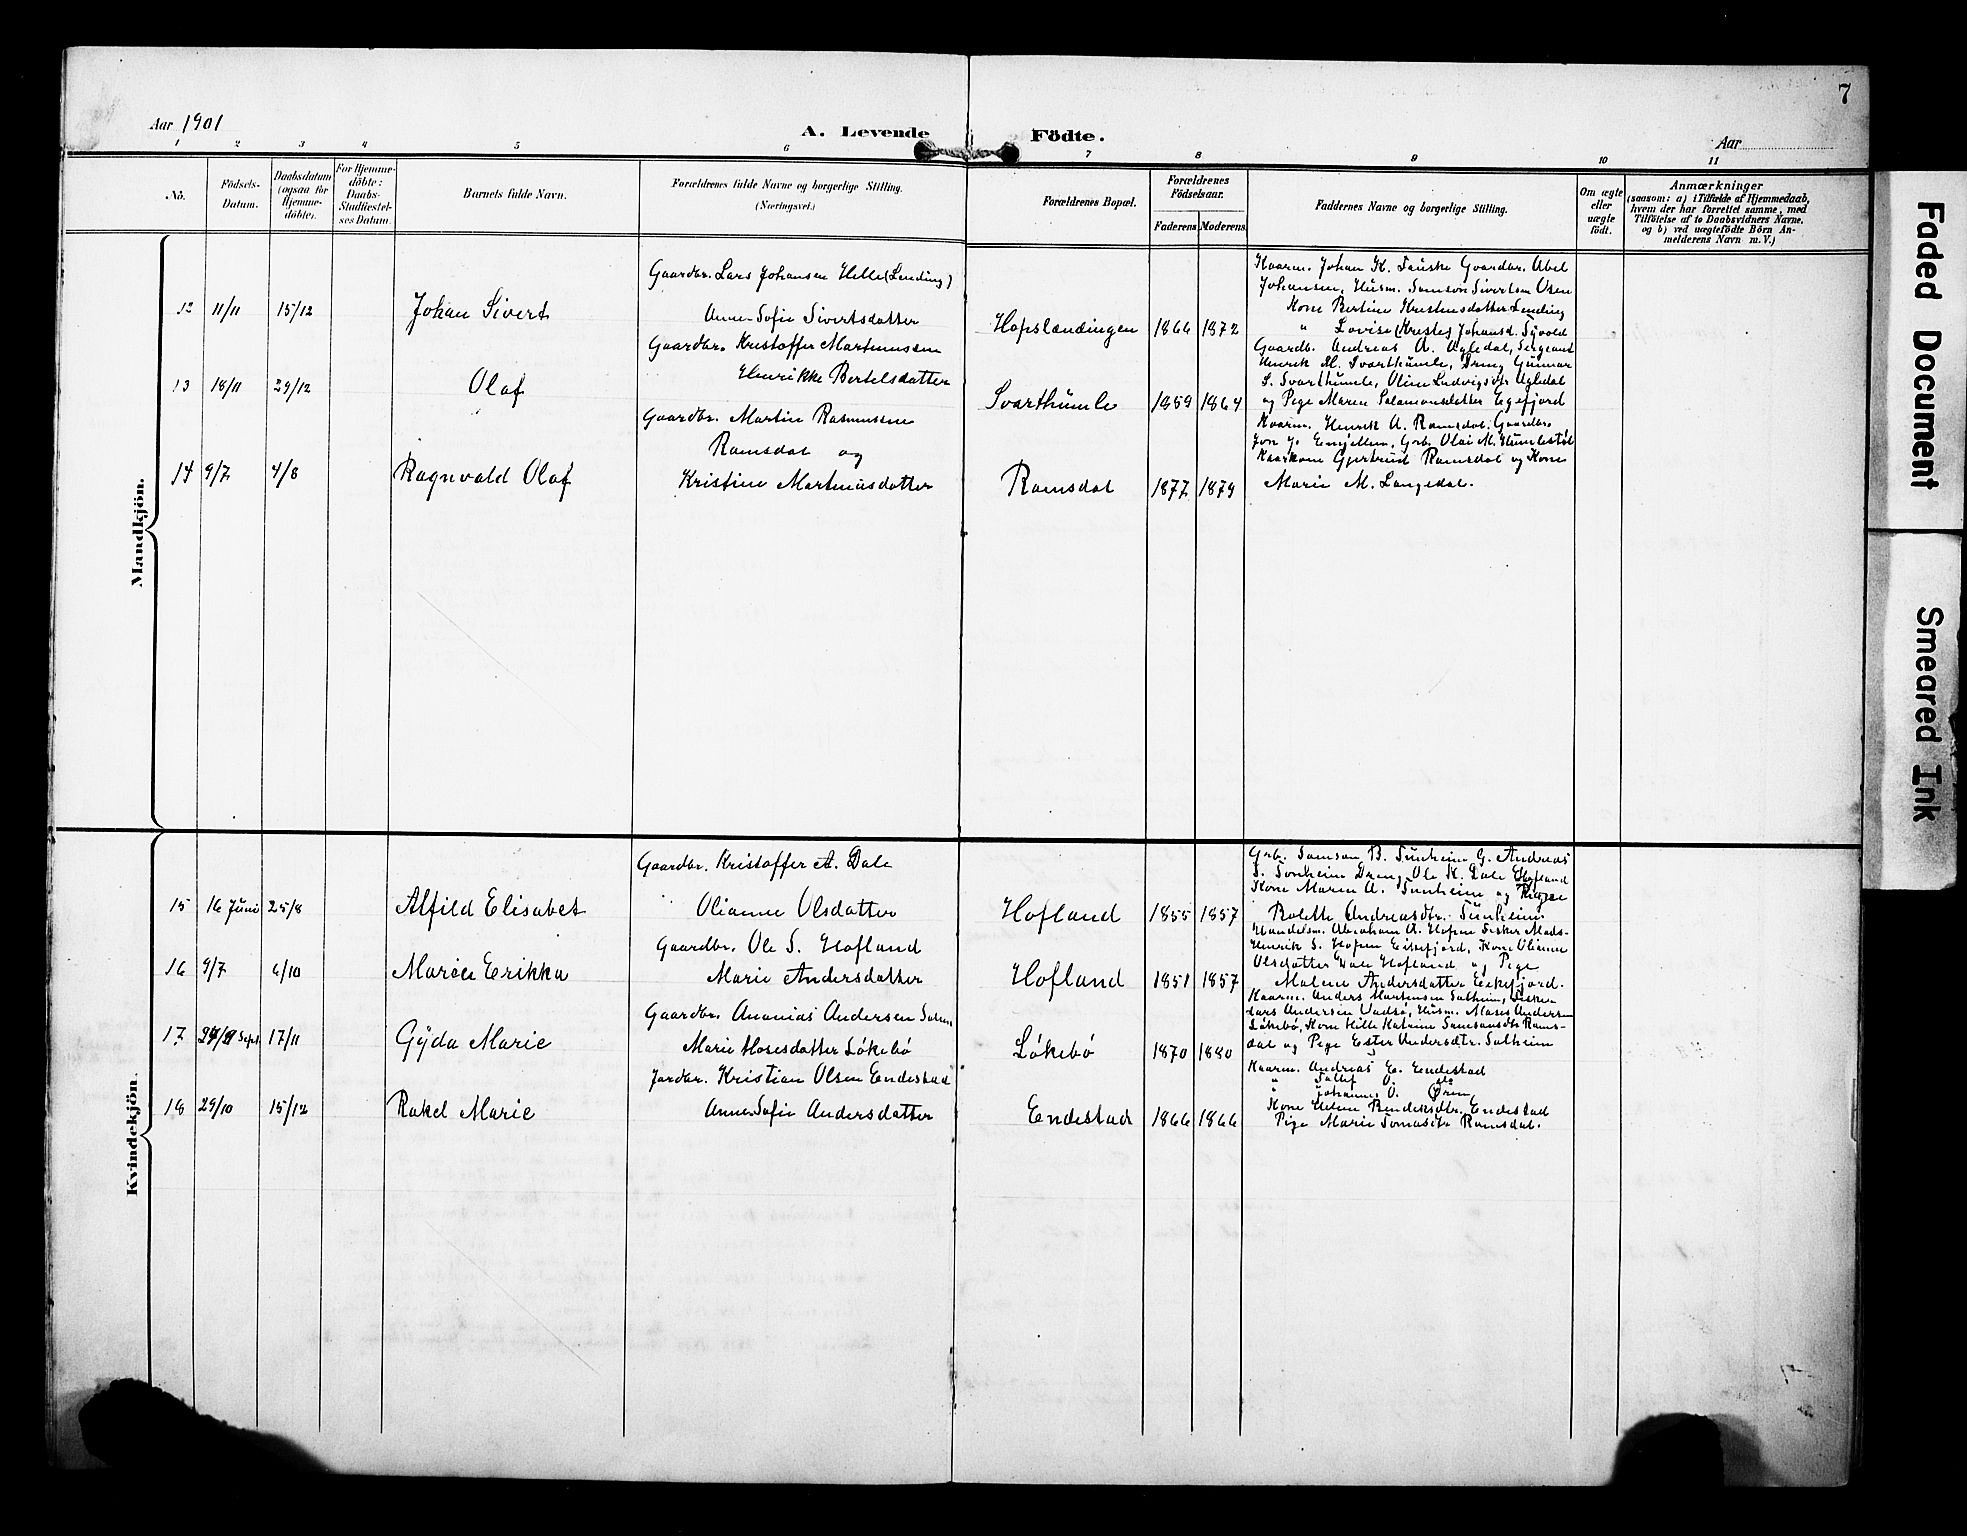 7
Aar 1901
A. Levende Födte.
Aar
1 2 3 4 5 6 7 8 9 10 11
No.
Födsels-
Datum.
Daabsdatum
(ogsaa for
Hjemme-
döbte).
For Hjemme-
döbte:
Daabs-
Stadfæstel-
ses Datum.
Barnets fulde Navn.
Forældrenes fulde Navne og borgerlige Stilling.
(Næringsvei.)
Forældrenes Bopæl.
Forældrenes
Födselsaar.
Faderens Moderens
Faddernes Navne og borgerlige Stilling.
Om ægte
eller
uægte
födt.
Anmærkninger
(saasom: a) i Tilfælde af Hjemmedaab,
hvem der har forrettet samme, med
Tilföielse af to Daabsvidners Navne,
og b) ved uægtefödte Börn An-
melderens Navn m. V.)
Mandkjön.
12 11/11 15/12 Johan Sivert
Gaardbr. Lars Johansen Helle (Lending)
Anne-Sofie Sivertsdatter
Hopslændingen 1864 1872
Kaarm. Johan K. Fauske Gaardbr. Abel
Johansen, Husm. Samson Sivertsen Osen
Kone Bertine Kristensdatter Lending
" Lovise (Kristen) Johansd.
13 18/11 29/12 Olaf
Gaardbr. Kristoffer Martinussen
Henrikke Bertelsdatter
Svarthumle 1859 1864
Gaardb. Andreas A. Agledal, Sergeant
Henrik M. Svarthumle, Dreng Gunnar
S. Svarthumle, Oline Ludvigsdtr Agledal
og Pige Maren Salamonsdatter Egefjord
14 9/7 4/8 Ragnvald Olaf
Gaardbr. Martin Rasmussen
Ramsdal og
Kristine Martinusdatter
Ramsdal 1877 1879
Kaarm. Henrik A. Ramsdal. Gaardbr.
Jon J. Grb. Olai M. Humlestöl
Kaarkone Gjertrud Ramsdal og Kone
Marie M. Langedal.
Kvindekjön.
15 16 Juni 25/8 Alfild Elisabet
Gaardbr. Kristoffer A. Dale
Olianne Olsdatter
Hofland 1855 1857
Grb. Samson B. Sunheim G. Andreas
S. Sonheim Dreng Ole K. Dale Hofland
Kone Maren A. Sunheim og Pige
Rolette Andreasdtr. Sunheim
16 9/7 6/10 Maren Erikka
Gaardbr. Ole S. Hofland
Marie Andersdatter
Hofland 1851 1857
Handelsm. Abraham A. Hopen Fisker Mads-
Henrik S. Hopen Eikefjord, Kone Olianne
Olsdatter Dale Hofland og Pige
Malene Andersdatter Eikefjord.
17 Sept 17/11 Gÿda Marie
Gaardbr. Ananias Andersen
Marie Mosesdatter Løkebø
Løkebø 1870 1880
Kaarm. Anders Mortensen Solheim, Fisker
Lars Andersen Vadsø, Husm. Moses Andersen
Løkebø, Kone Hille Katrine Samsonsdtr Rams-
dal og Pige Ester Andersdtr. Solheim
18 29/10 15/12 Rakel Marie
Jordbr. Kristian Olsen Endestad
Anne-Sofie Andersdatter
Endestad 1866 1866
Kaarm. Andreas E. Endestad
" O. do
" Johannes O. Øren
Kone Helene Bendiksdtr. Endestad
Pige Marie Ramsdal.
Faded Document
Smeared Ink